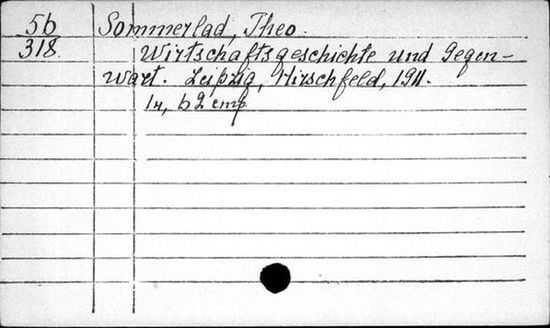 56
318.
Sommerlad, Theo.
Wirtschaftsgeschichte und Gegen-
wart. Leipzig, Hirschfeld, 1911.